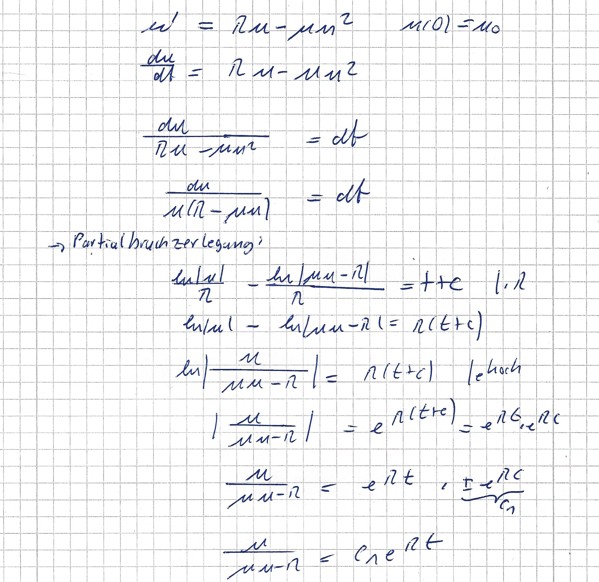 u' = λu - μu² u(0) = u₀
du/dt = λu - μu²
du/(λu - μu²) = dt
du/(u(λ - μu)) = dt
→ Partialbruchzerlegung:
ln|u|/λ - ln|μu - λ|/λ = t+c |·λ
ln|u| - ln|μu - λ| = λ(t+c)
ln|u/(μu - λ)| = λ(t+c) |e hoch
|u/(μu - λ)| = e^(λ(t+c)) = e^(λt) · e^(λc)
u/(μu - λ) = e^(λt) · ± e^(λc)
c₁
u/(μu - λ) = c₁ e^(λt)